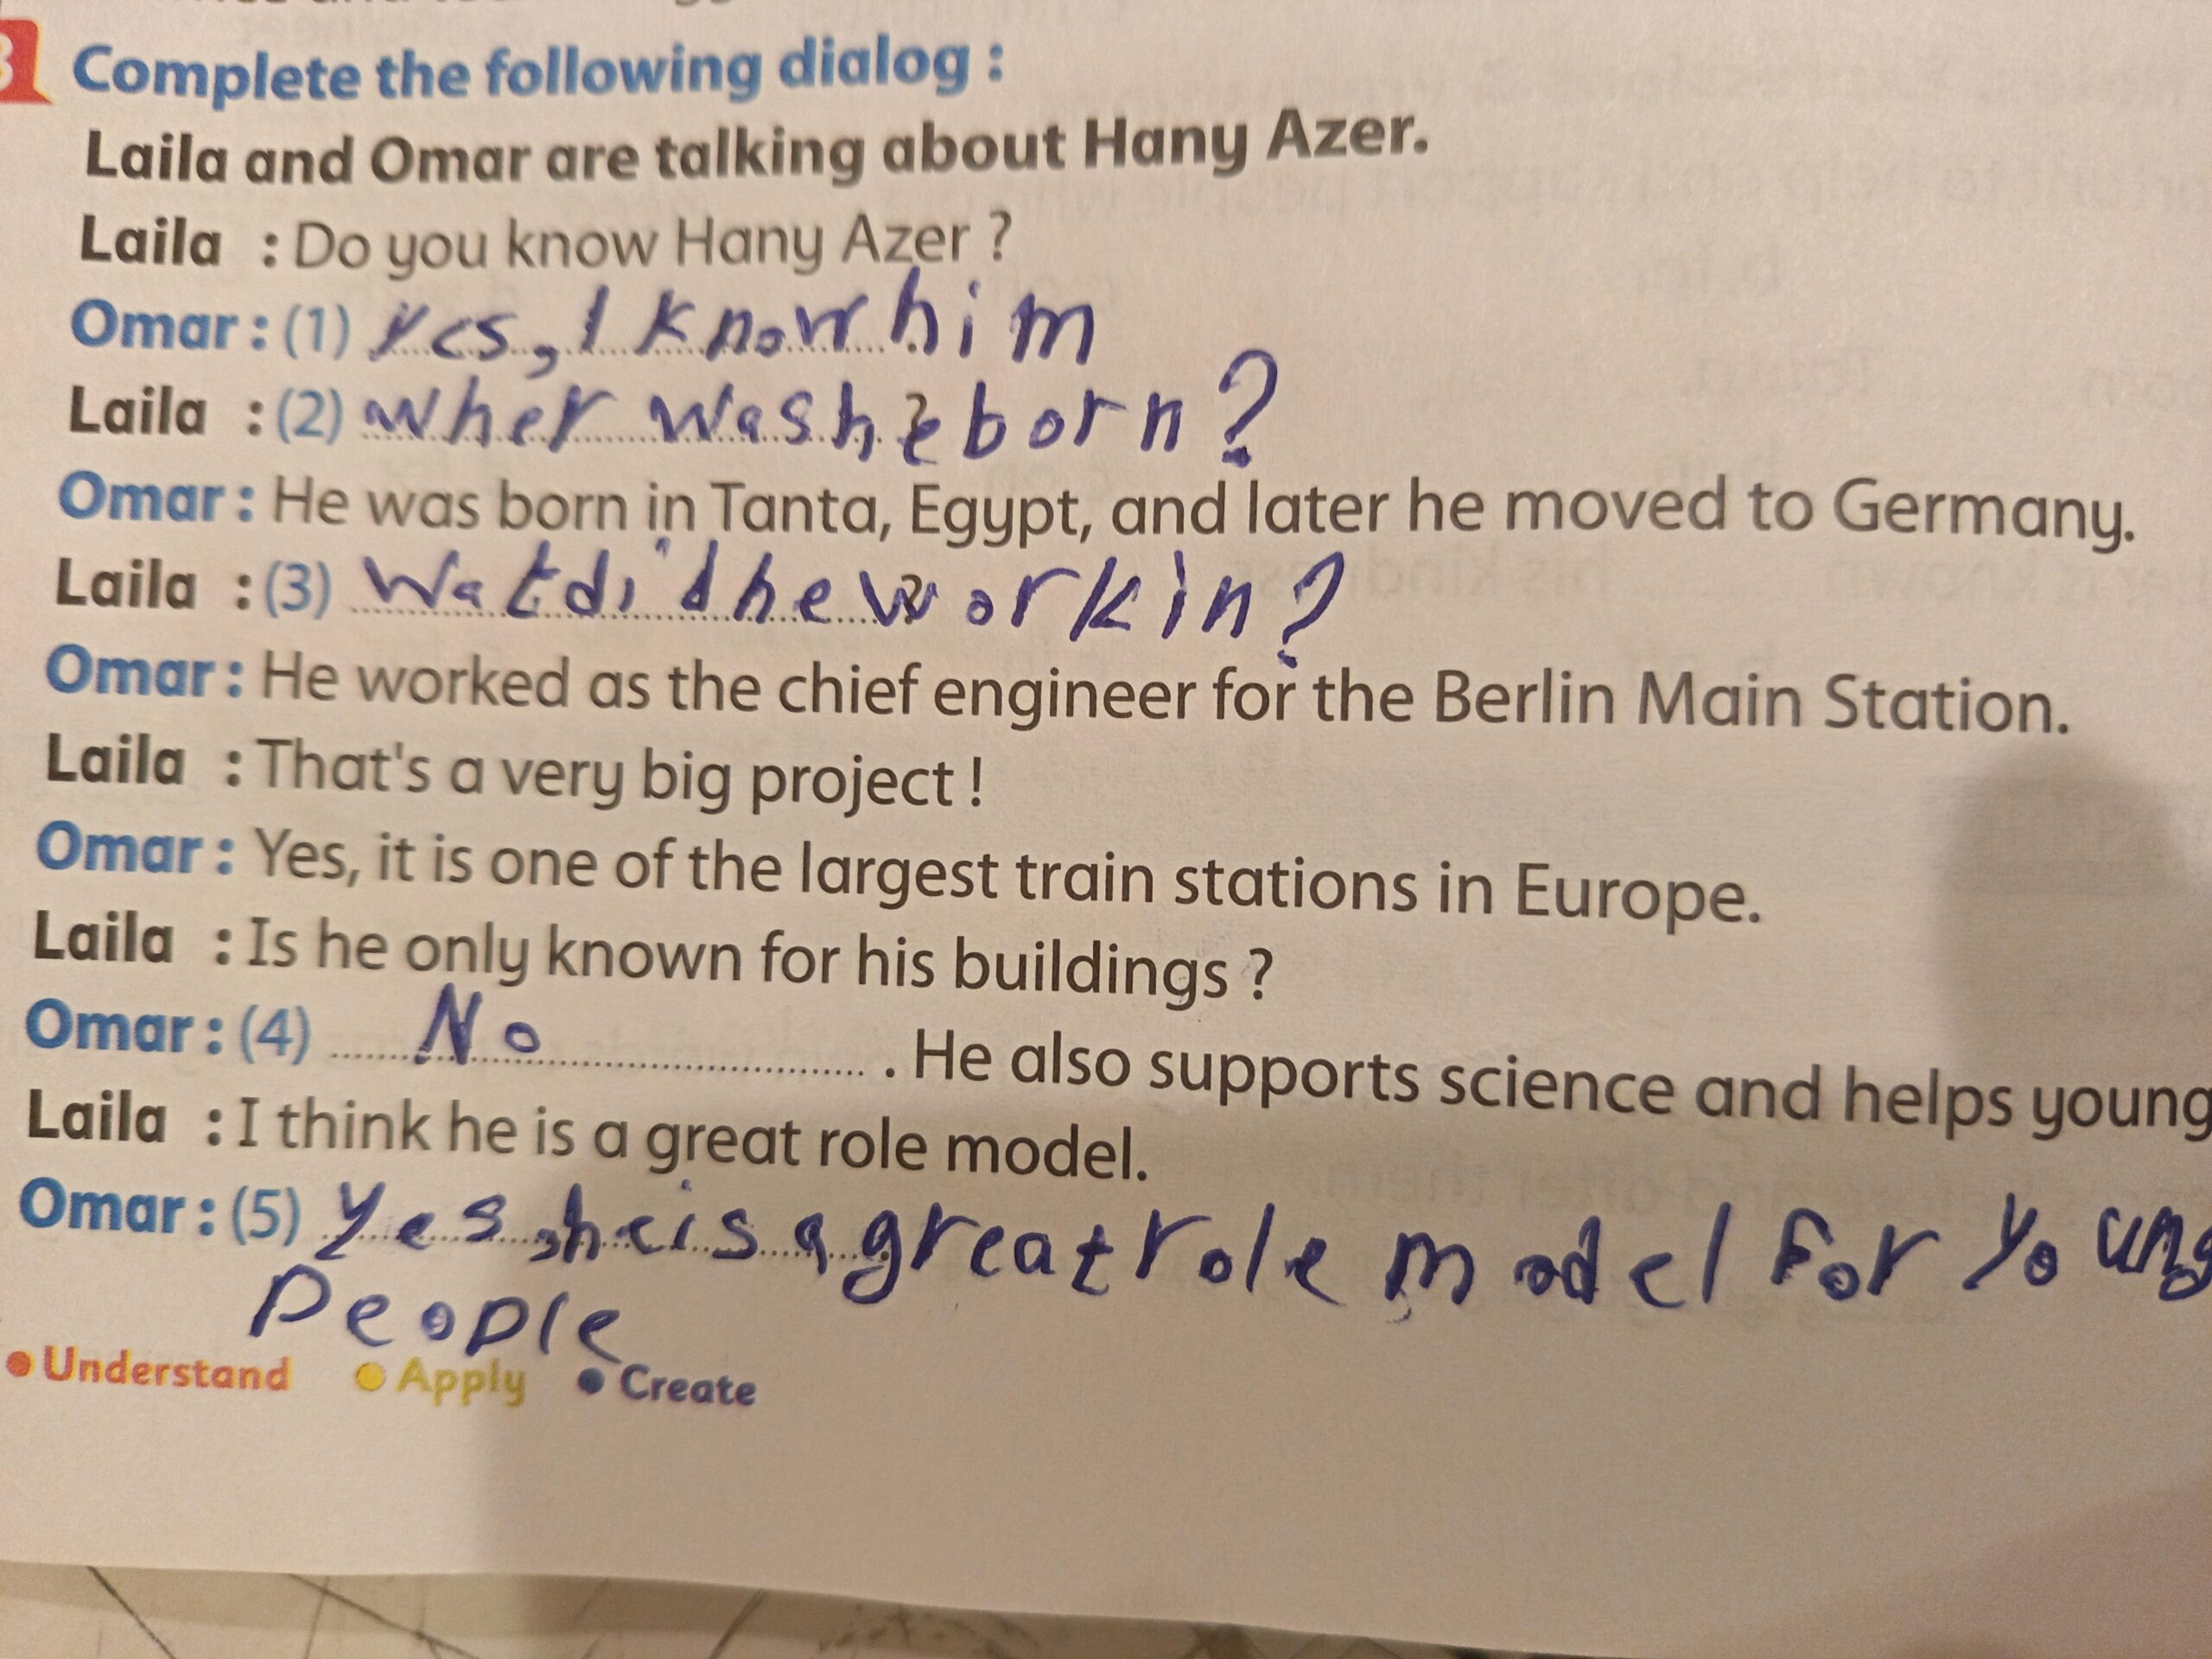 3 Complete the following dialog :
Laila and Omar are talking about Hany Azer.
Laila : Do you know Hany Azer ?
Omar : (1) yes, I know him
Laila : (2) wher was he born ?
Omar : He was born in Tanta, Egypt, and later he moved to Germany.
Laila : (3) Wat did he work in ?
Omar : He worked as the chief engineer for the Berlin Main Station.
Laila : That's a very big project !
Omar : Yes, it is one of the largest train stations in Europe.
Laila : Is he only known for his buildings ?
Omar : (4) No . He also supports science and helps young
Laila : I think he is a great role model.
Omar : (5) yes, he is a great role model For young
People
• Understand • Apply • Create